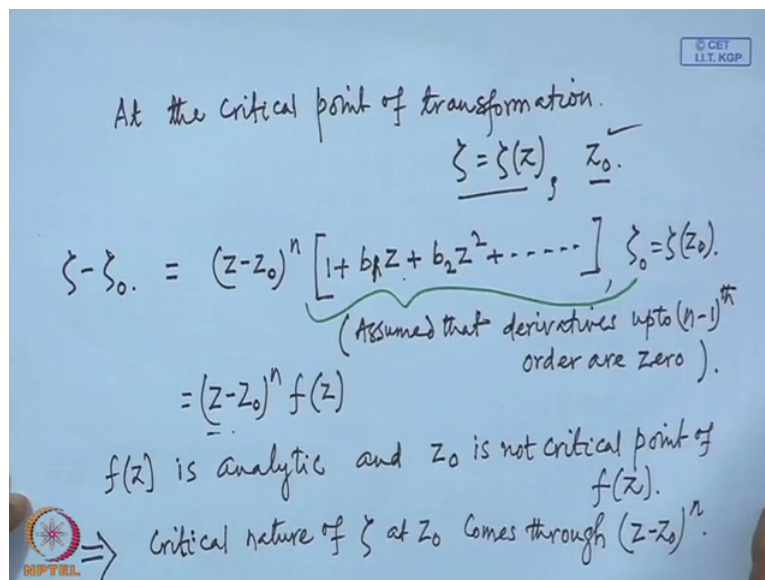 © CET
I.I.T. KGP
At the critical point of transformation.
ζ = ζ(z), z₀.
ζ-ζ₀. = (z-z₀)ⁿ [1+ b₁z + b₂z² + ------], ζ₀ = ζ(z₀).
(Assumed that derivatives upto (n-1)ᵗʰ
order are zero).
= (z-z₀)ⁿ f(z)
f(z) is analytic and z₀ is not critical point of
f(z).
⇒ Critical nature of ζ at z₀ comes through (z-z₀)ⁿ.
NPTEL